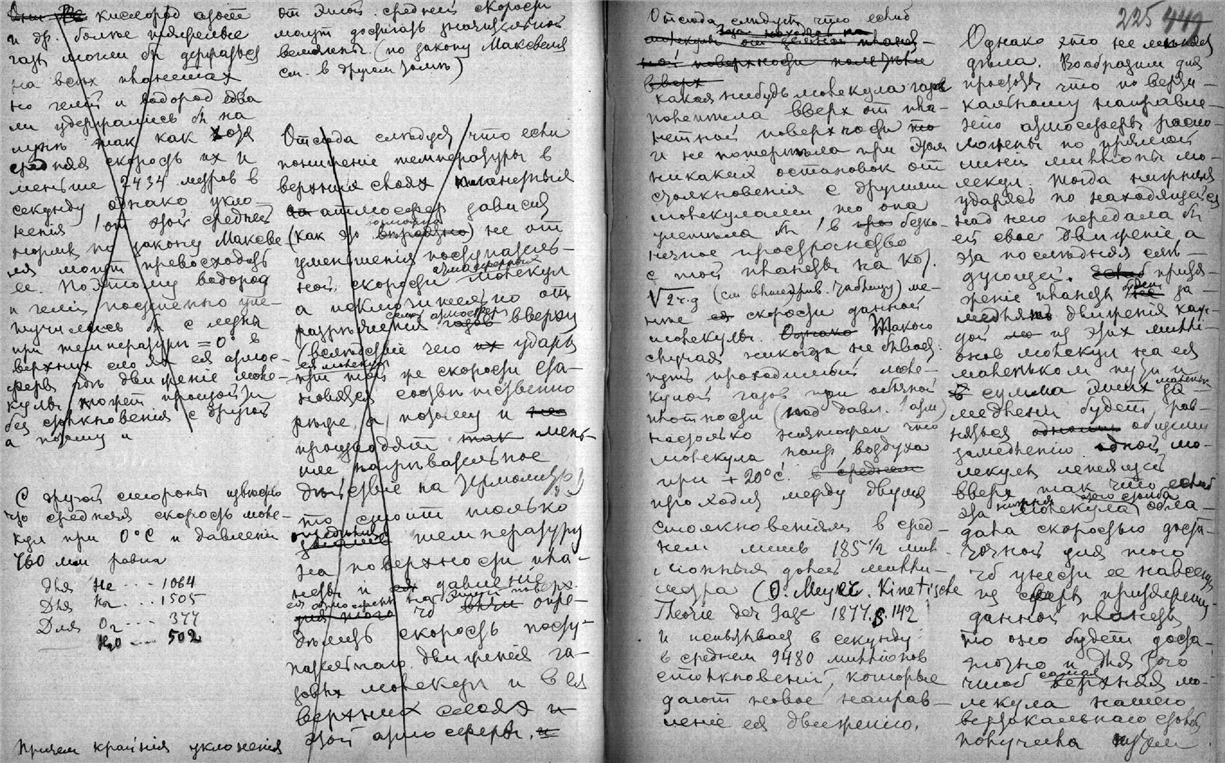 кислород азот
и др. более тяжелые
газы могли бы держаться
на всех планетах
но гелий и водород едва
ли удержались бы на
луне так как хотя
средняя скорость их и
меньше 2434 метров в
секунду однако укло-
нения от этой средней
нормы по закону Максве
ля могут превосходить
ее. Поэтому водород
и гелий постепенно уле-
тучились бы с луны
при температуре = 0° в
верхних слоях ея атмос-
феры, где движение моле-
кулы может происходить
без столкновения с другой
а потому и
С другой стороны известно
что средняя скорость моле-
кул при 0°C и давлении
760 мм равна
Для He --- 1064
Для H2 --- 1505
Для O2 --- 377
H2O --- 502
Причем крайния уклонения
от этой средней скорости
могут достигать значительной
величины (по закону Максвеля
см. в другом томе)
Отсюда следует что если
понижение температуры в
верхних слоях планетных
атмосфер зависит
(как это ) не от
уменьшения поступатель-
ной скорости молекул
а исключительно от
разряжения газов вверху
(вследствие чего их удары
при той же скорости ста-
новятся соответственно
реже, а потому и
производят так мень-
шее нагревательное
действие на термометр)
то стоит только
температуру
на поверхности пла-
неты и давление
на этой поверх.
чтоб опре-
делить скорость посту-
пательного движения га-
зовых молекул и в ея
верхних слоях и
этой атмосферы.
225 449
Отсюда следует что если
какая нибудь молекула газа
полетела вверх от пла-
нетной поверхности
и не потерпела при этом
никаких остановок от
столкновения с другими
молекулами то она
улетела бы в беско-
нечное пространство
с той планеты на кот.
√2rg (см. таблицу) ме-
нее скорости данной
молекулы. Однако такого
случая никогда не бывает.
путь проходимый моле-
кулой газов при обычной
плотности (под давл. 1 атм)
настолько ничтожен что
молекула напр. воздуха
при +20°C. в среднем
проходит между двумя
столкновениями в сред-
нем лишь 185½ мил-
лионных долей милли-
метра (O. Meyer. Kinetische
Theorie der Gase 1877. S. 142
и испытывает в секунду
в среднем 9480 миллионов
столкновений, которые
дают новое направ-
ление ея движению.
Однако это не меняет
дела. Вообразим для
простоты что по верти-
кальному направле-
нию атмосферы распо-
ложены по прямой
линии миллионы мо-
лекул, тогда нижняя
ударясь по находящейся
над ней передала бы
ей свое движение а
эта последняя сле-
дующей. притя-
жение планеты будет за-
медлять движения каж-
дой из этих милли-
онов молекул на ея
маленьком пути и
сумма этих маленьк.
замедлений будет рав-
няться общему
замедлению одной мо-
лекулы летящей
вверх так что если
эта нижняя молекула обла-
дала скоростью доста-
точной для того
чтоб унести ее навсегда
из сферы притяжения
данной планеты
то оно будет доста-
точно и для того
чтоб самая верхняя мо-
лекула нашего
вертикального столба
получила